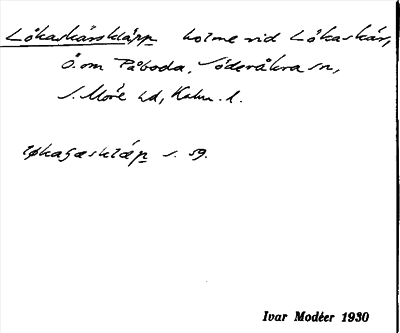 Lökaskärskläpp holme vid Lökaskär,
Ö. om Påboda, Söderåkra sn,
S. Möre hd, Kalm. l.
s. 59.
Ivar Modéer 1930